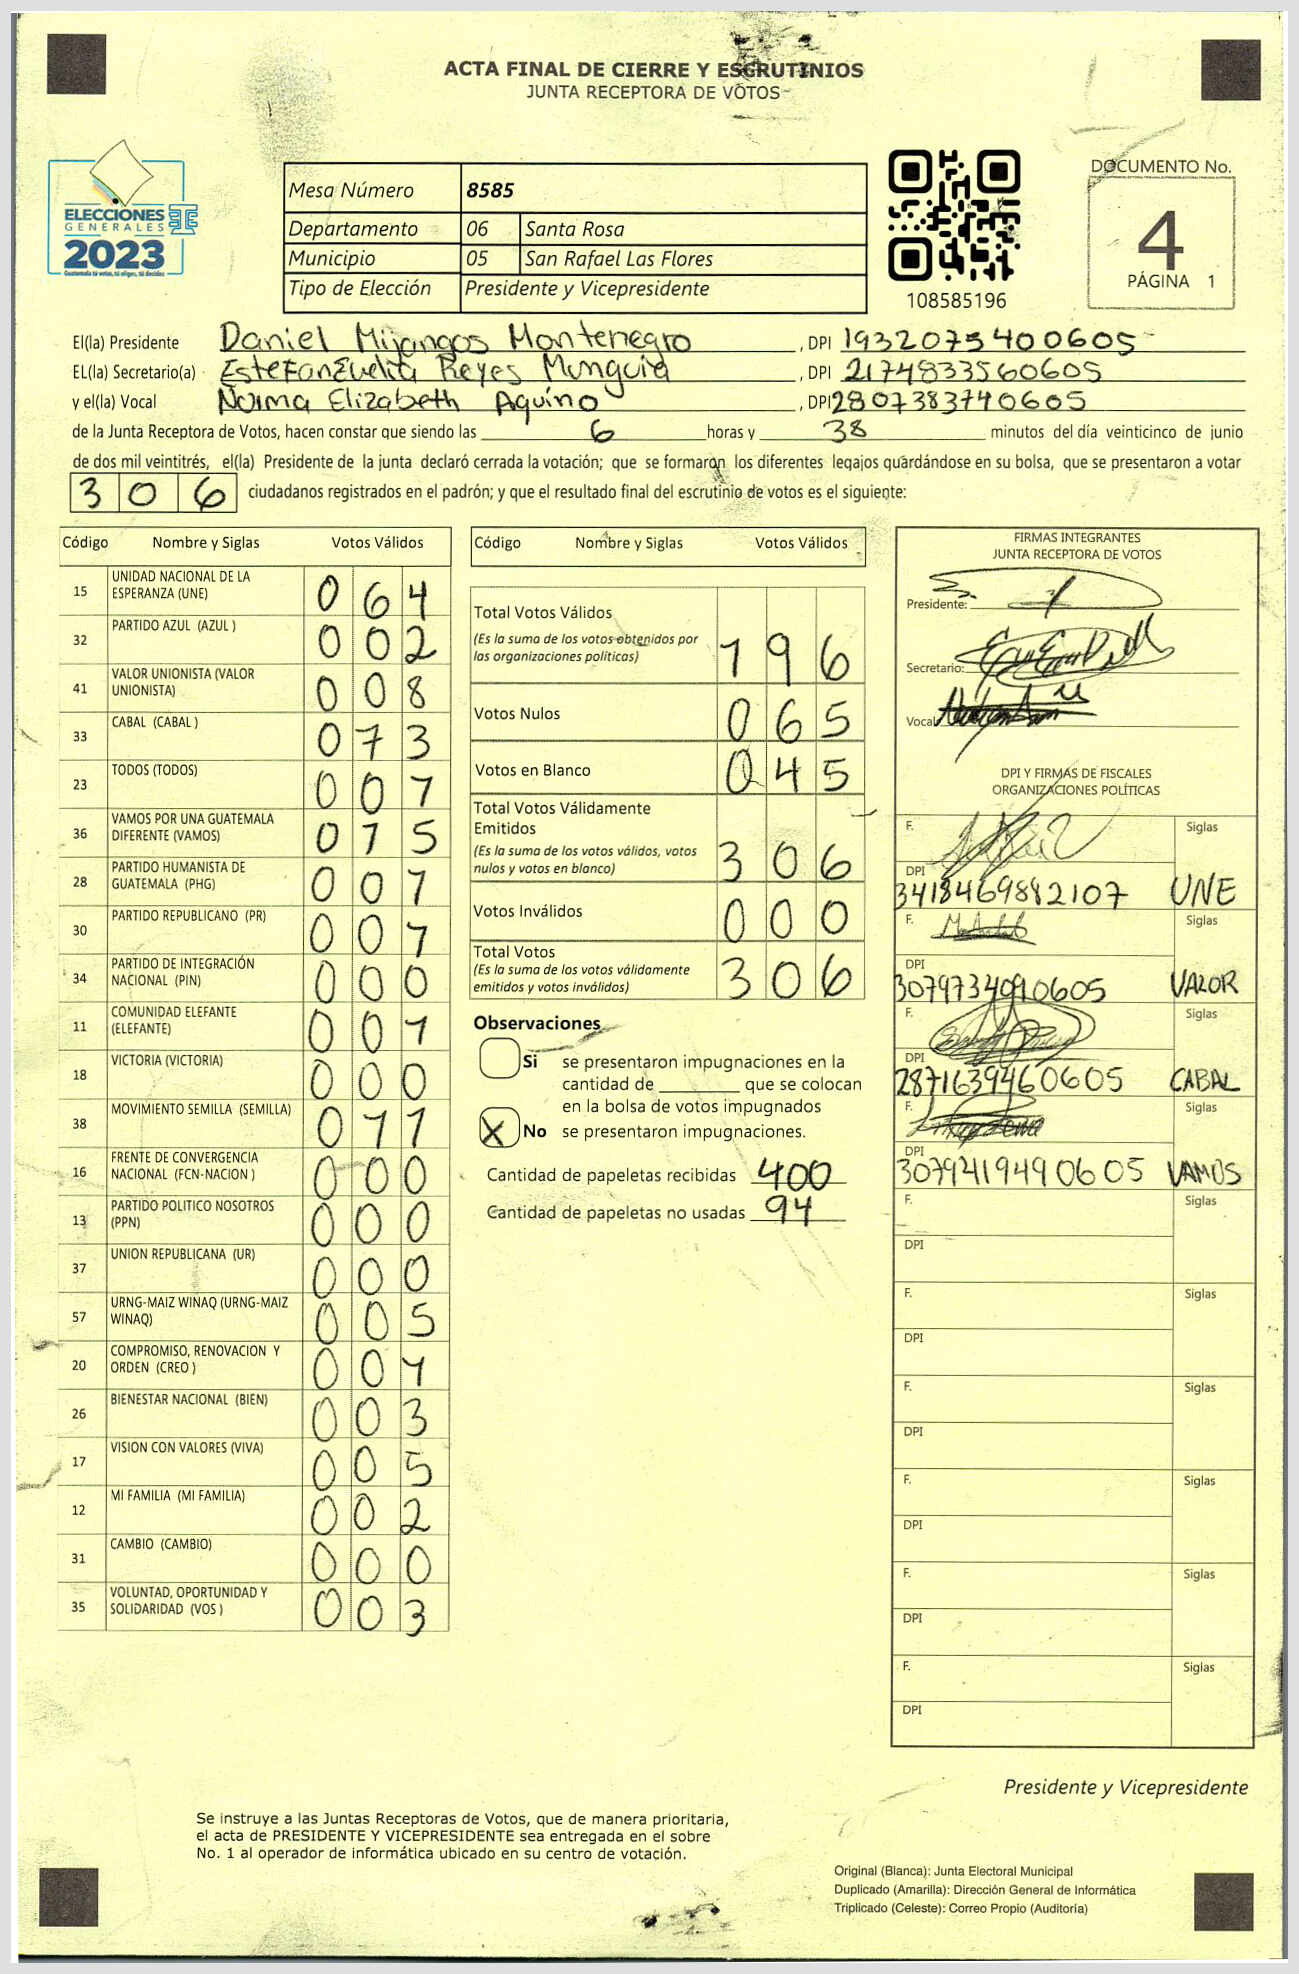 ACTA FINAL DE CIERRE Y ESCRUTINIOS
JUNTA RECEPTORA DE VOTOS
ELECCIONES
GENERALES
2023
Guatemala tú votas, tú eliges, tú decides
Mesa Número 8585
Departamento 06 Santa Rosa
Municipio 05 San Rafael Las Flores
Tipo de Elección Presidente y Vicepresidente
108585196
DOCUMENTO No.
4
PÁGINA 1
El(la) Presidente Daniel Mijangos Montenegro, DPI 1932075400605
EL(la) Secretario(a) Estefan Evelita Reyes Munguia, DPI 2174833560605
y el(la) Vocal Norma Elizabeth Aquino, DPI 2807383740605
de la Junta Receptora de Votos, hacen constar que siendo las 6 horas y 38 minutos del día veinticinco de junio
de dos mil veintitrés, el(la) Presidente de la junta declaró cerrada la votación; que se formaron los diferentes legajos guardándose en su bolsa, que se presentaron a votar
306 ciudadanos registrados en el padrón; y que el resultado final del escrutinio de votos es el siguiente:
Código Nombre y Siglas Votos Válidos
15 UNIDAD NACIONAL DE LA ESPERANZA (UNE) 064
32 PARTIDO AZUL (AZUL ) 002
41 VALOR UNIONISTA (VALOR UNIONISTA) 008
33 CABAL (CABAL ) 073
23 TODOS (TODOS) 001
36 VAMOS POR UNA GUATEMALA DIFERENTE (VAMOS) 015
28 PARTIDO HUMANISTA DE GUATEMALA (PHG) 001
30 PARTIDO REPUBLICANO (PR) 001
34 PARTIDO DE INTEGRACIÓN NACIONAL (PIN) 000
11 COMUNIDAD ELEFANTE (ELEFANTE) 001
18 VICTORIA (VICTORIA) 000
38 MOVIMIENTO SEMILLA (SEMILLA) 011
16 FRENTE DE CONVERGENCIA NACIONAL (FCN-NACION ) 000
13 PARTIDO POLITICO NOSOTROS (PPN) 000
37 UNION REPUBLICANA (UR) 000
57 URNG-MAIZ WINAQ (URNG-MAIZ WINAQ) 005
20 COMPROMISO, RENOVACION Y ORDEN (CREO ) 001
26 BIENESTAR NACIONAL (BIEN) 003
17 VISION CON VALORES (VIVA) 005
12 MI FAMILIA (MI FAMILIA) 002
31 CAMBIO (CAMBIO) 000
35 VOLUNTAD, OPORTUNIDAD Y SOLIDARIDAD (VOS ) 003
Código Nombre y Siglas Votos Válidos
Total Votos Válidos 196
(Es la suma de los votos obtenidos por
las organizaciones políticas)
Votos Nulos 065
Votos en Blanco 045
Total Votos Válidamente
Emitidos 306
(Es la suma de los votos válidos, votos
nulos y votos en blanco)
Votos Inválidos 000
Total Votos 306
(Es la suma de los votos válidamente
emitidos y votos inválidos)
Observaciones
Si se presentaron impugnaciones en la
cantidad de ________ que se colocan
en la bolsa de votos impugnados
X No se presentaron impugnaciones.
Cantidad de papeletas recibidas 400
Cantidad de papeletas no usadas 94
FIRMAS INTEGRANTES
JUNTA RECEPTORA DE VOTOS
Presidente:
Secretario:
Vocal
DPI Y FIRMAS DE FISCALES
ORGANIZACIONES POLÍTICAS
F. Siglas
DPI
3418469882107 UNE
F. Siglas
DPI
3079734090605 VALOR
F. Siglas
DPI
2871639460605 CABAL
F. Siglas
DPI
3079419490605 VAMOS
F. Siglas
DPI
F. Siglas
DPI
F. Siglas
DPI
F. Siglas
DPI
F. Siglas
DPI
F. Siglas
DPI
Presidente y Vicepresidente
Se instruye a las Juntas Receptoras de Votos, que de manera prioritaria,
el acta de PRESIDENTE Y VICEPRESIDENTE sea entregada en el sobre
No. 1 al operador de informática ubicado en su centro de votación.
Original (Blanca): Junta Electoral Municipal
Duplicado (Amarilla): Dirección General de Informática
Triplicado (Celeste): Correo Propio (Auditoría)